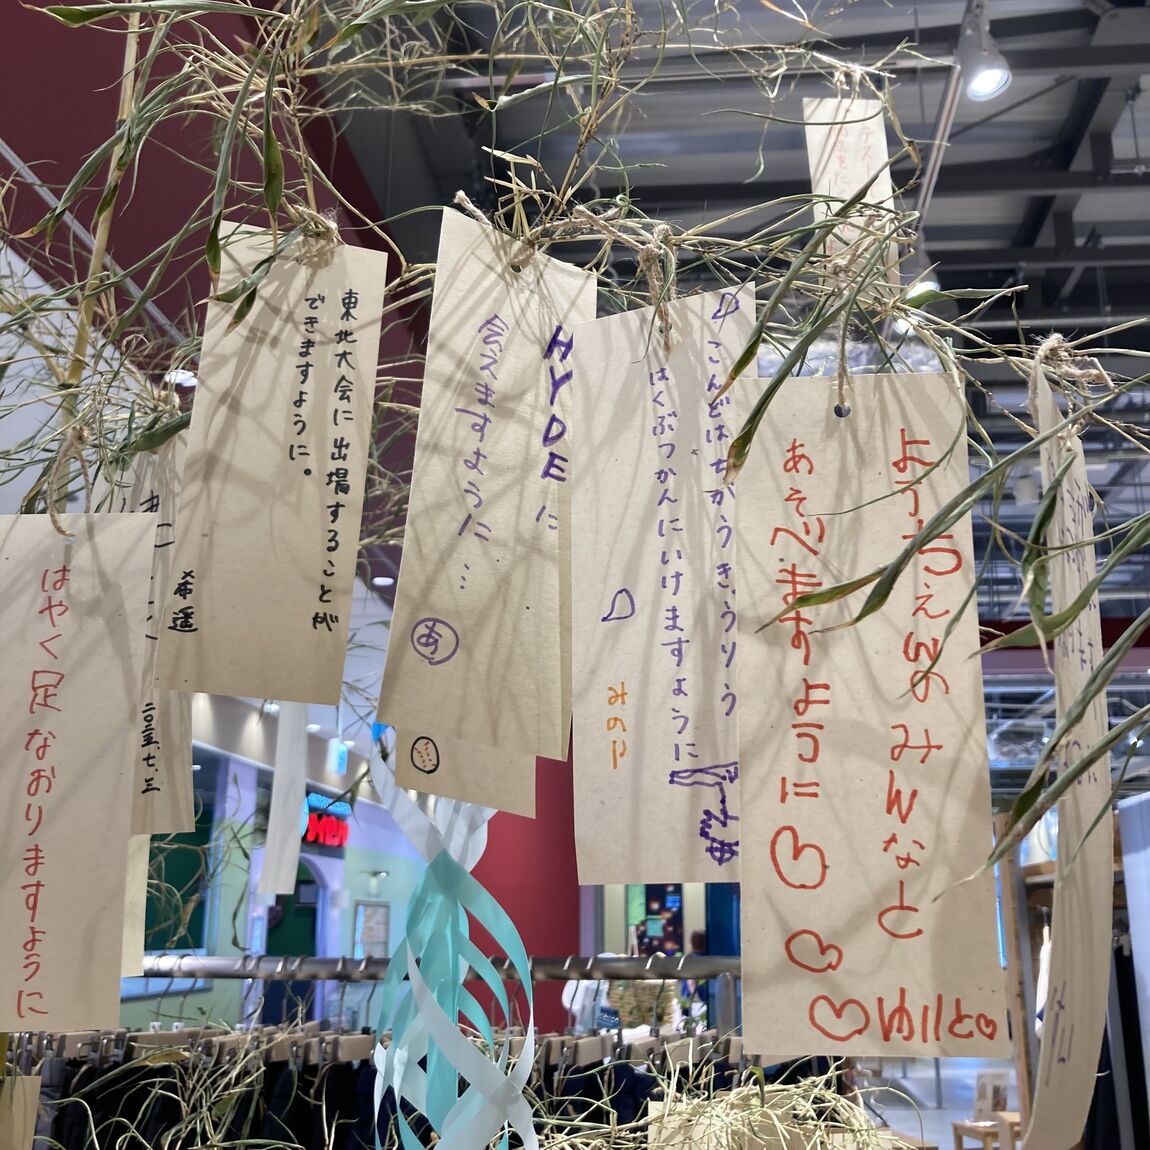 はやく足なおりますように
二〇二三、七、三
東北大会に出場することが
できますように。
希遥
HYDEに
会えますように…
あ
こんどはちがうきょうりゅう
はくぶつかんにいけますように
みのり
ようちえんのみんなと
あそべますように
ゆりと